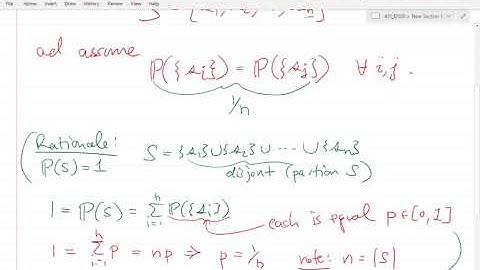 File Home Insert Draw History Review View Help
S = {s₁, s₂, ..., sₙ}
ad assume
P({si}) = P({sj}) ∀ i,j.
1/n
( Rationale:
P(S) = 1
S = {s₁}∪{s₂}∪ ⋯ ∪{sn}
disjont (partion S)
1 = P(S) = Σ_{i=1}^{n} P({si}) each is equal p∈[0,1]
1 = Σ_{i=1}^{n} p = np ⇒ p = 1/n note: n = |S| )